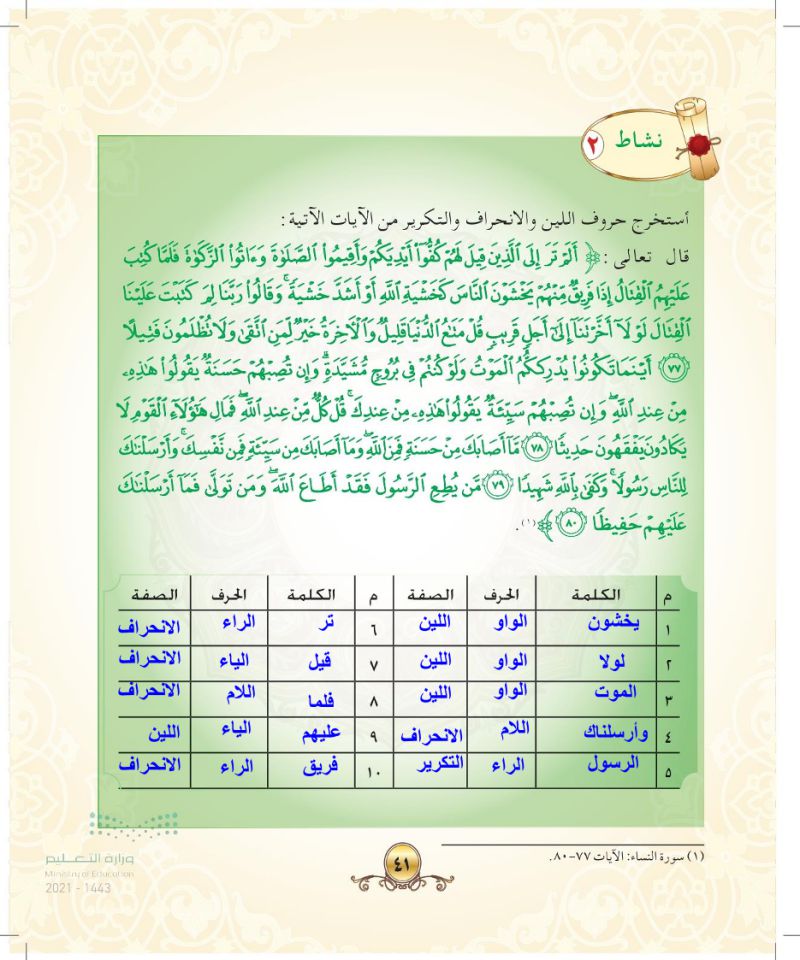 نشاط ٢
أستخرج حروف اللين والانحراف والتكرير من الآيات الآتية:
قال تعالى: ﴿أَلَمْ تَرَ إِلَى ٱلَّذِينَ قِيلَ لَهُمْ كُفُّوٓا۟ أَيْدِيَكُمْ وَأَقِيمُوا۟ ٱلصَّلَوٰةَ وَءَاتُوا۟ ٱلزَّكَوٰةَ فَلَمَّا كُتِبَ
عَلَيْهِمُ ٱلْقِتَالُ إِذَا فَرِيقٌ مِّنْهُمْ يَخْشَوْنَ ٱلنَّاسَ كَخَشْيَةِ ٱللَّهِ أَوْ أَشَدَّ خَشْيَةً ۚ وَقَالُوا۟ رَبَّنَا لِمَ كَتَبْتَ عَلَيْنَا
ٱلْقِتَالَ لَوْلَآ أَخَّرْتَنَآ إِلَىٰٓ أَجَلٍ قَرِيبٍ ۗ قُلْ مَتَٰعُ ٱلدُّنْيَا قَلِيلٌ وَٱلْءَاخِرَةُ خَيْرٌ لِّمَنِ ٱتَّقَىٰ وَلَا تُظْلَمُونَ فَتِيلًا
٧٧ أَيْنَمَا تَكُونُوا۟ يُدْرِككُّمُ ٱلْمَوْتُ وَلَوْ كُنتُمْ فِى بُرُوجٍ مُّشَيَّدَةٍ ۗ وَإِن تُصِبْهُمْ حَسَنَةٌ يَقُولُوا۟ هَٰذِهِۦ
مِنْ عِندِ ٱللَّهِ ۖ وَإِن تُصِبْهُمْ سَيِّئَةٌ يَقُولُوا۟ هَٰذِهِۦ مِنْ عِندِكَ ۚ قُلْ كُلٌّ مِّنْ عِندِ ٱللَّهِ ۖ فَمَالِ هَٰٓؤُلَآءِ ٱلْقَوْمِ لَا
يَكَادُونَ يَفْقَهُونَ حَدِيثًا ٧٨ مَّآ أَصَابَكَ مِنْ حَسَنَةٍ فَمِنَ ٱللَّهِ ۖ وَمَآ أَصَابَكَ مِن سَيِّئَةٍ فَمِن نَّفْسِكَ ۚ وَأَرْسَلْنَٰكَ
لِلنَّاسِ رَسُولًا ۚ وَكَفَىٰ بِٱللَّهِ شَهِيدًا ٧٩ مَّن يُطِعِ ٱلرَّسُولَ فَقَدْ أَطَاعَ ٱللَّهَ ۖ وَمَن تَوَلَّىٰ فَمَآ أَرْسَلْنَٰكَ
عَلَيْهِمْ حَفِيظًا ٨٠﴾ (١).
م الكلمة الحرف الصفة م الكلمة الحرف الصفة
١ يخشون الواو اللين ٦ تر الراء الانحراف
٢ لولا الواو اللين ٧ قيل الياء الانحراف
٣ الموت الواو اللين ٨ فلما اللام الانحراف
٤ وأرسلناك اللام الانحراف ٩ عليهم الياء اللين
٥ الرسول الراء التكرير ١٠ فريق الراء الانحراف
(١) سورة النساء: الآيات ٧٧-٨٠.
٤١
وزارة التعليم
Ministry of Education
2021 - 1443